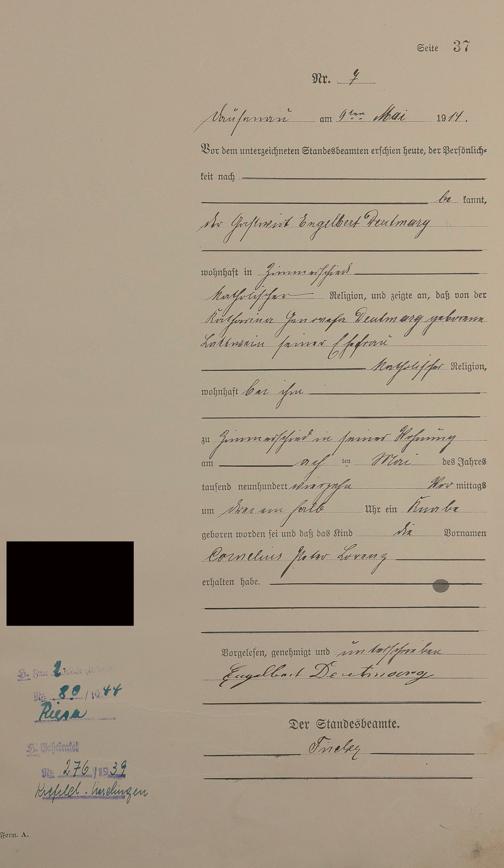 Seite 37
Nr. 7
Dausenau am 9ten Mai 1914.
Vor dem unterzeichneten Standesbeamten erschien heute, der Persönlich-
keit nach
be kannt,
der Gastwirt Engelbert Deutmarg
wohnhaft in Zimmerschied
katholischer Religion, und zeigte an, daß von der
Katharina Genovefa Deutmarg geborene
seiner Ehefrau
katholischer Religion,
wohnhaft bei ihm
zu Zimmerschied in seiner Wohnung
am acht ten Mai des Jahres
tausend neunhundert vierzehn Vor mittags
um drei ein halb Uhr ein Knabe
geboren worden sei und daß das Kind die Vornamen
Cornelius Peter Lorenz
erhalten habe.
Vorgelesen, genehmigt und unterschrieben
Engelbert Deutmarg
Der Standesbeamte.
2
Nr. 80/1944
Riesa
Nr. 276/1939
Krefeld-Uerdingen
Form. A.